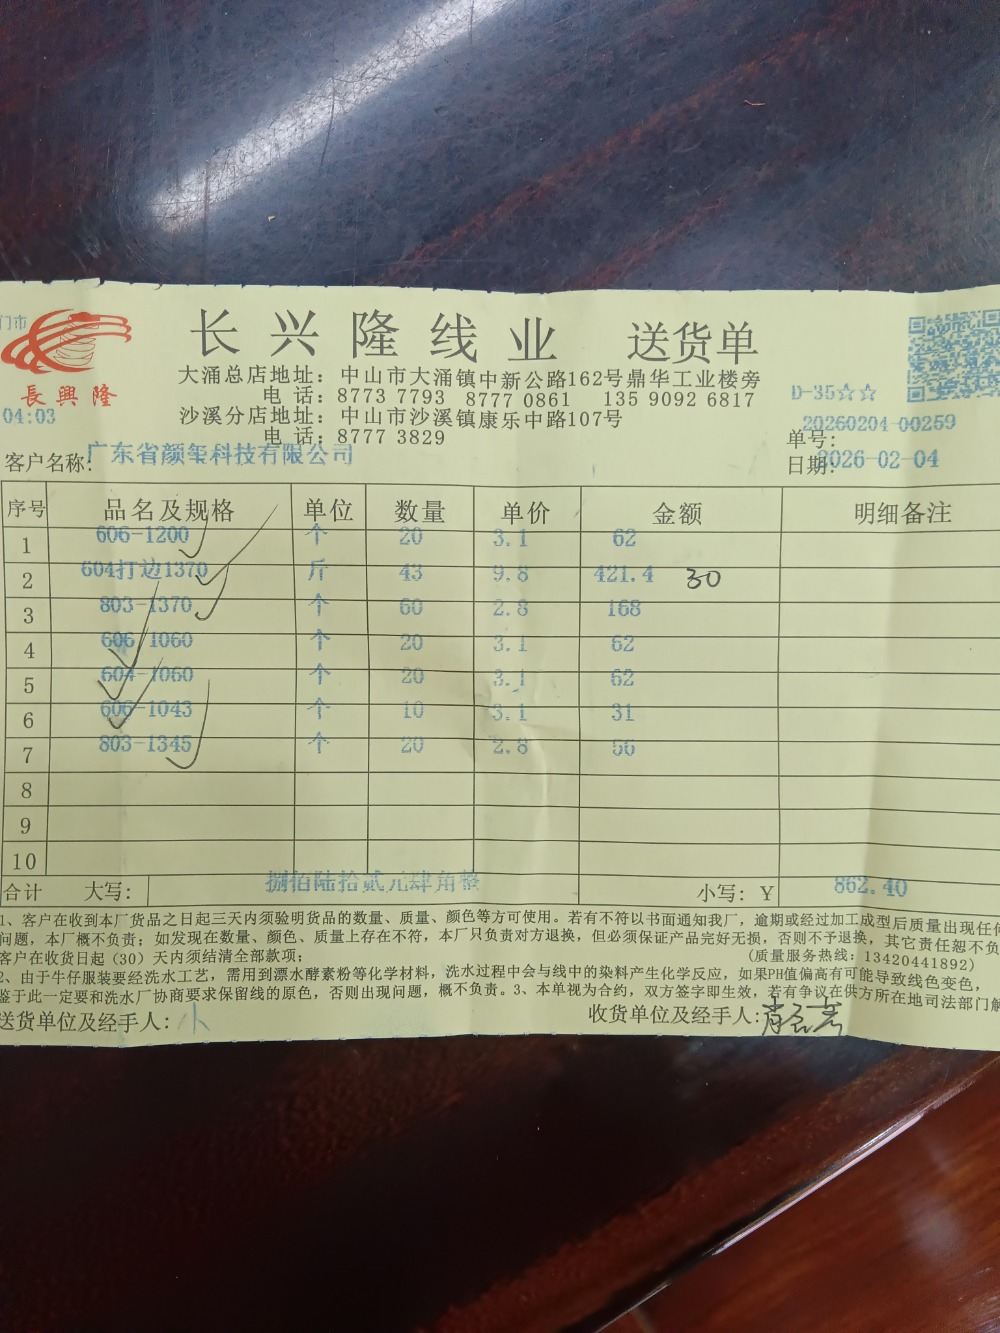 门市
長興隆
04:03
长兴隆线业 送货单
大涌总店地址：中山市大涌镇中新公路162号鼎华工业楼旁
电 话：8773 7793 8777 0861 135 9092 6817
沙溪分店地址：中山市沙溪镇康乐中路107号
电 话：8777 3829
D-35☆☆
单号：20260204-00259
客户名称：广东省颜玺科技有限公司
日期：2026-02-04
序号 品名及规格 单位 数量 单价 金额 明细备注
1 606-1200 个 20 3.1 62
2 604打边1370 斤 43 9.8 421.4 30
3 803-1370 个 60 2.8 168
4 606-1060 个 20 3.1 62
5 604-1060 个 20 3.1 62
6 606-1043 个 10 3.1 31
7 803-1345 个 20 2.8 56
8
9
10
合计 大写：捌佰陆拾贰元肆角整 小写：Y 862.40
1、客户在收到本厂货品之日起三天内须验明货品的数量、质量、颜色等方可使用。若有不符以书面通知我厂，逾期或经过加工成型后质量出现任何
问题，本厂概不负责；如发现在数量、颜色、质量上存在不符，本厂只负责对方退换，但必须保证产品完好无损，否则不予退换，其它责任恕不负
客户在收货日起（30）天内须结清全部款项； (质量服务热线：13420441892)
2、由于牛仔服装要经洗水工艺，需用到漂水酵素粉等化学材料，洗水过程中会与线中的染料产生化学反应，如果PH值偏高有可能导致线色变色，
鉴于此一定要和洗水厂协商要求保留线的原色，否则出现问题，概不负责。3、本单视为合约，双方签字即生效，若有争议在供方所在地司法部门解
送货单位及经手人：小
收货单位及经手人：